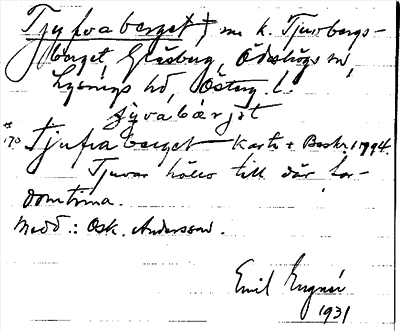 Tjyfvaberget † nu k. Tjuvbergs-
berget, Glasberg, Ödeshögs sn,
Lysings hd, Österg. l.
jyvabärjet
*170 Tjufvaberget Karta + Beskr. 1794.
Tjuvar hölls till där for-
domtima.
Medd.: Osk. Andersson.
Emil Engnér
1931